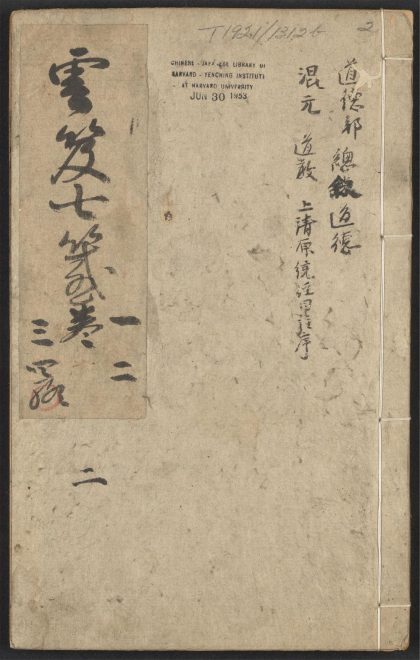 T 1921/1312b
2
CHINESE - JAPANESE LIBRARY OF
HARVARD - YENCHING INSTITUTE
AT HARVARD UNIVERSITY
JUN 30 1953
道德部 總敘道德
混元 道教 上清原統經目註序
雲笈七籤卷
一二
三
二